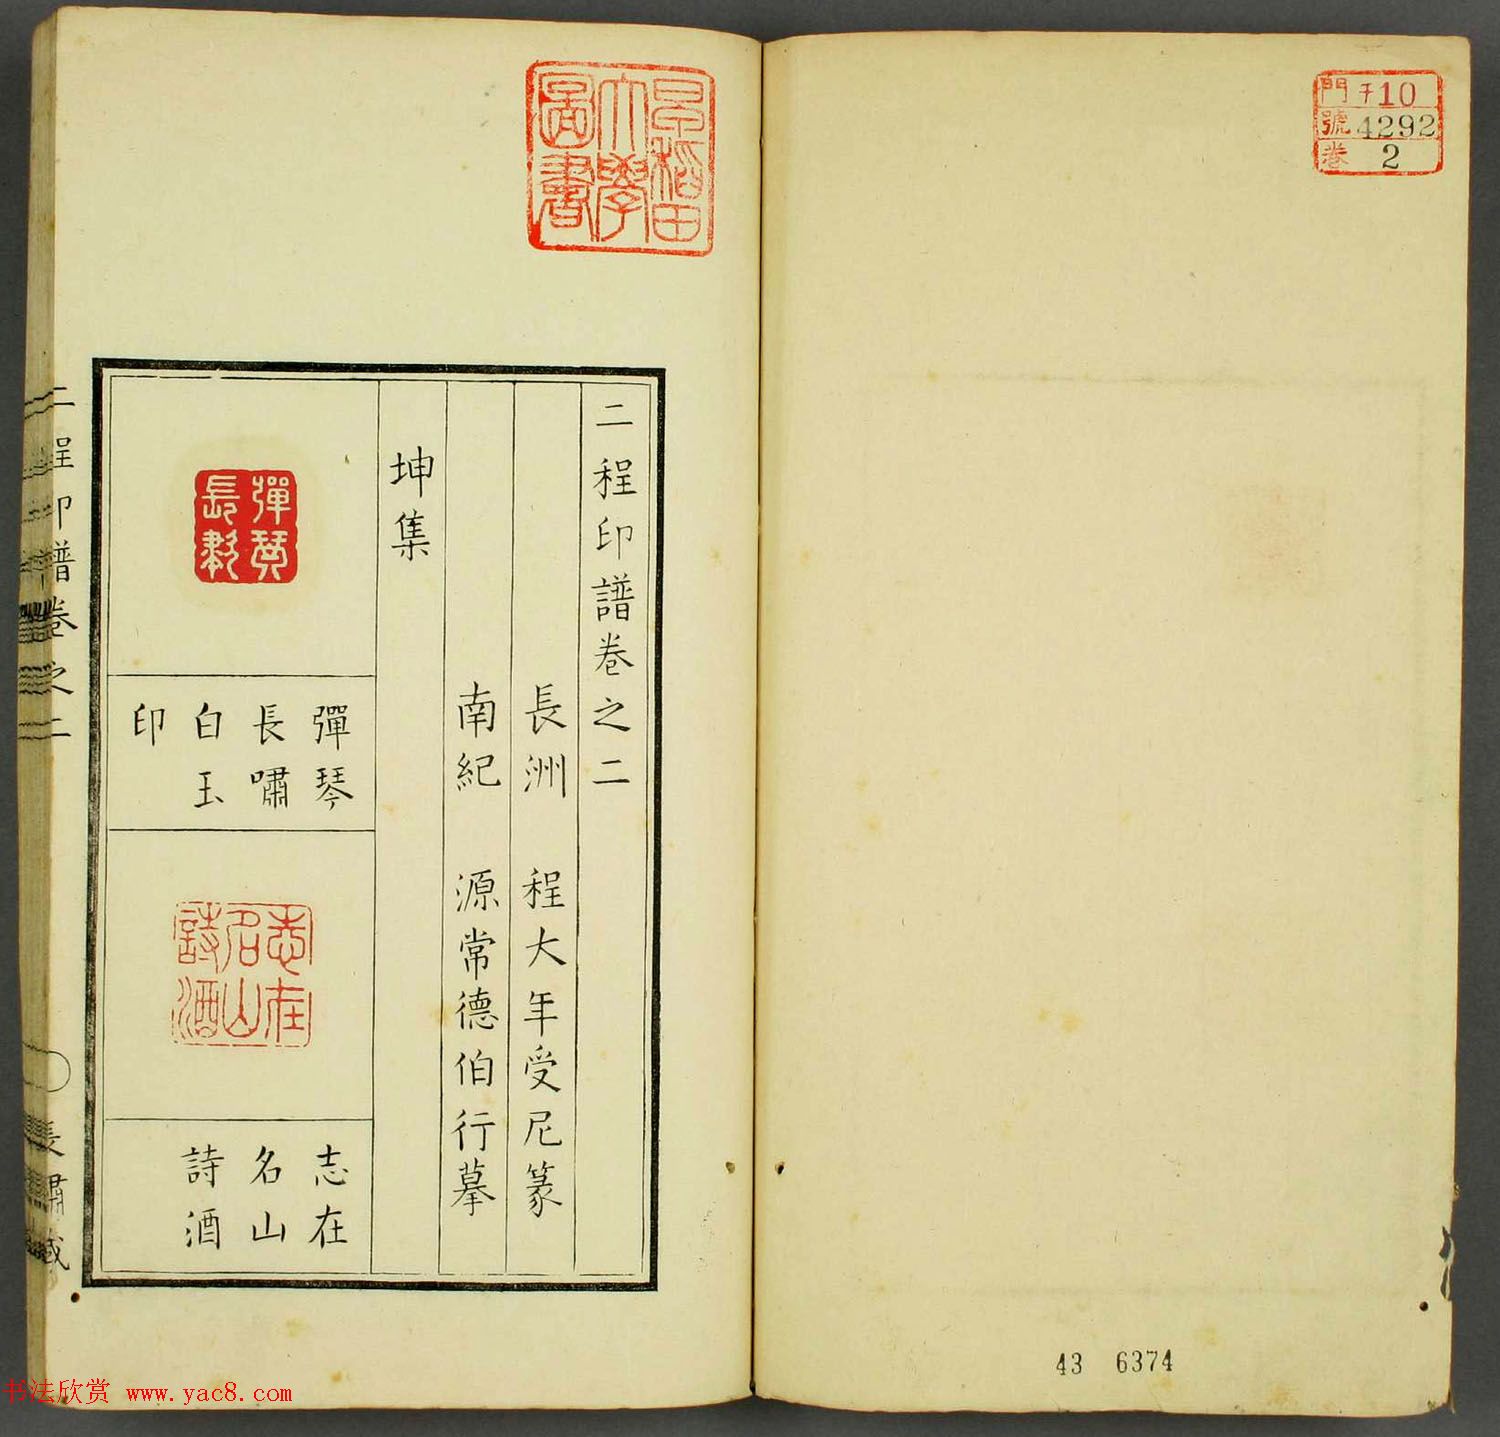 門 チ10
號 4292
卷 2
早稻田
大學
圖書
二程印譜卷之二
長洲 程大年受尼篆
南紀 源常德伯行摹
坤集
彈琴
長嘯
彈琴
長嘯
白玉
印
志在
名山
詩酒
志在
名山
詩酒
二程印譜卷之二
長嘯
43 6374
书法欣赏 www.yac8.com